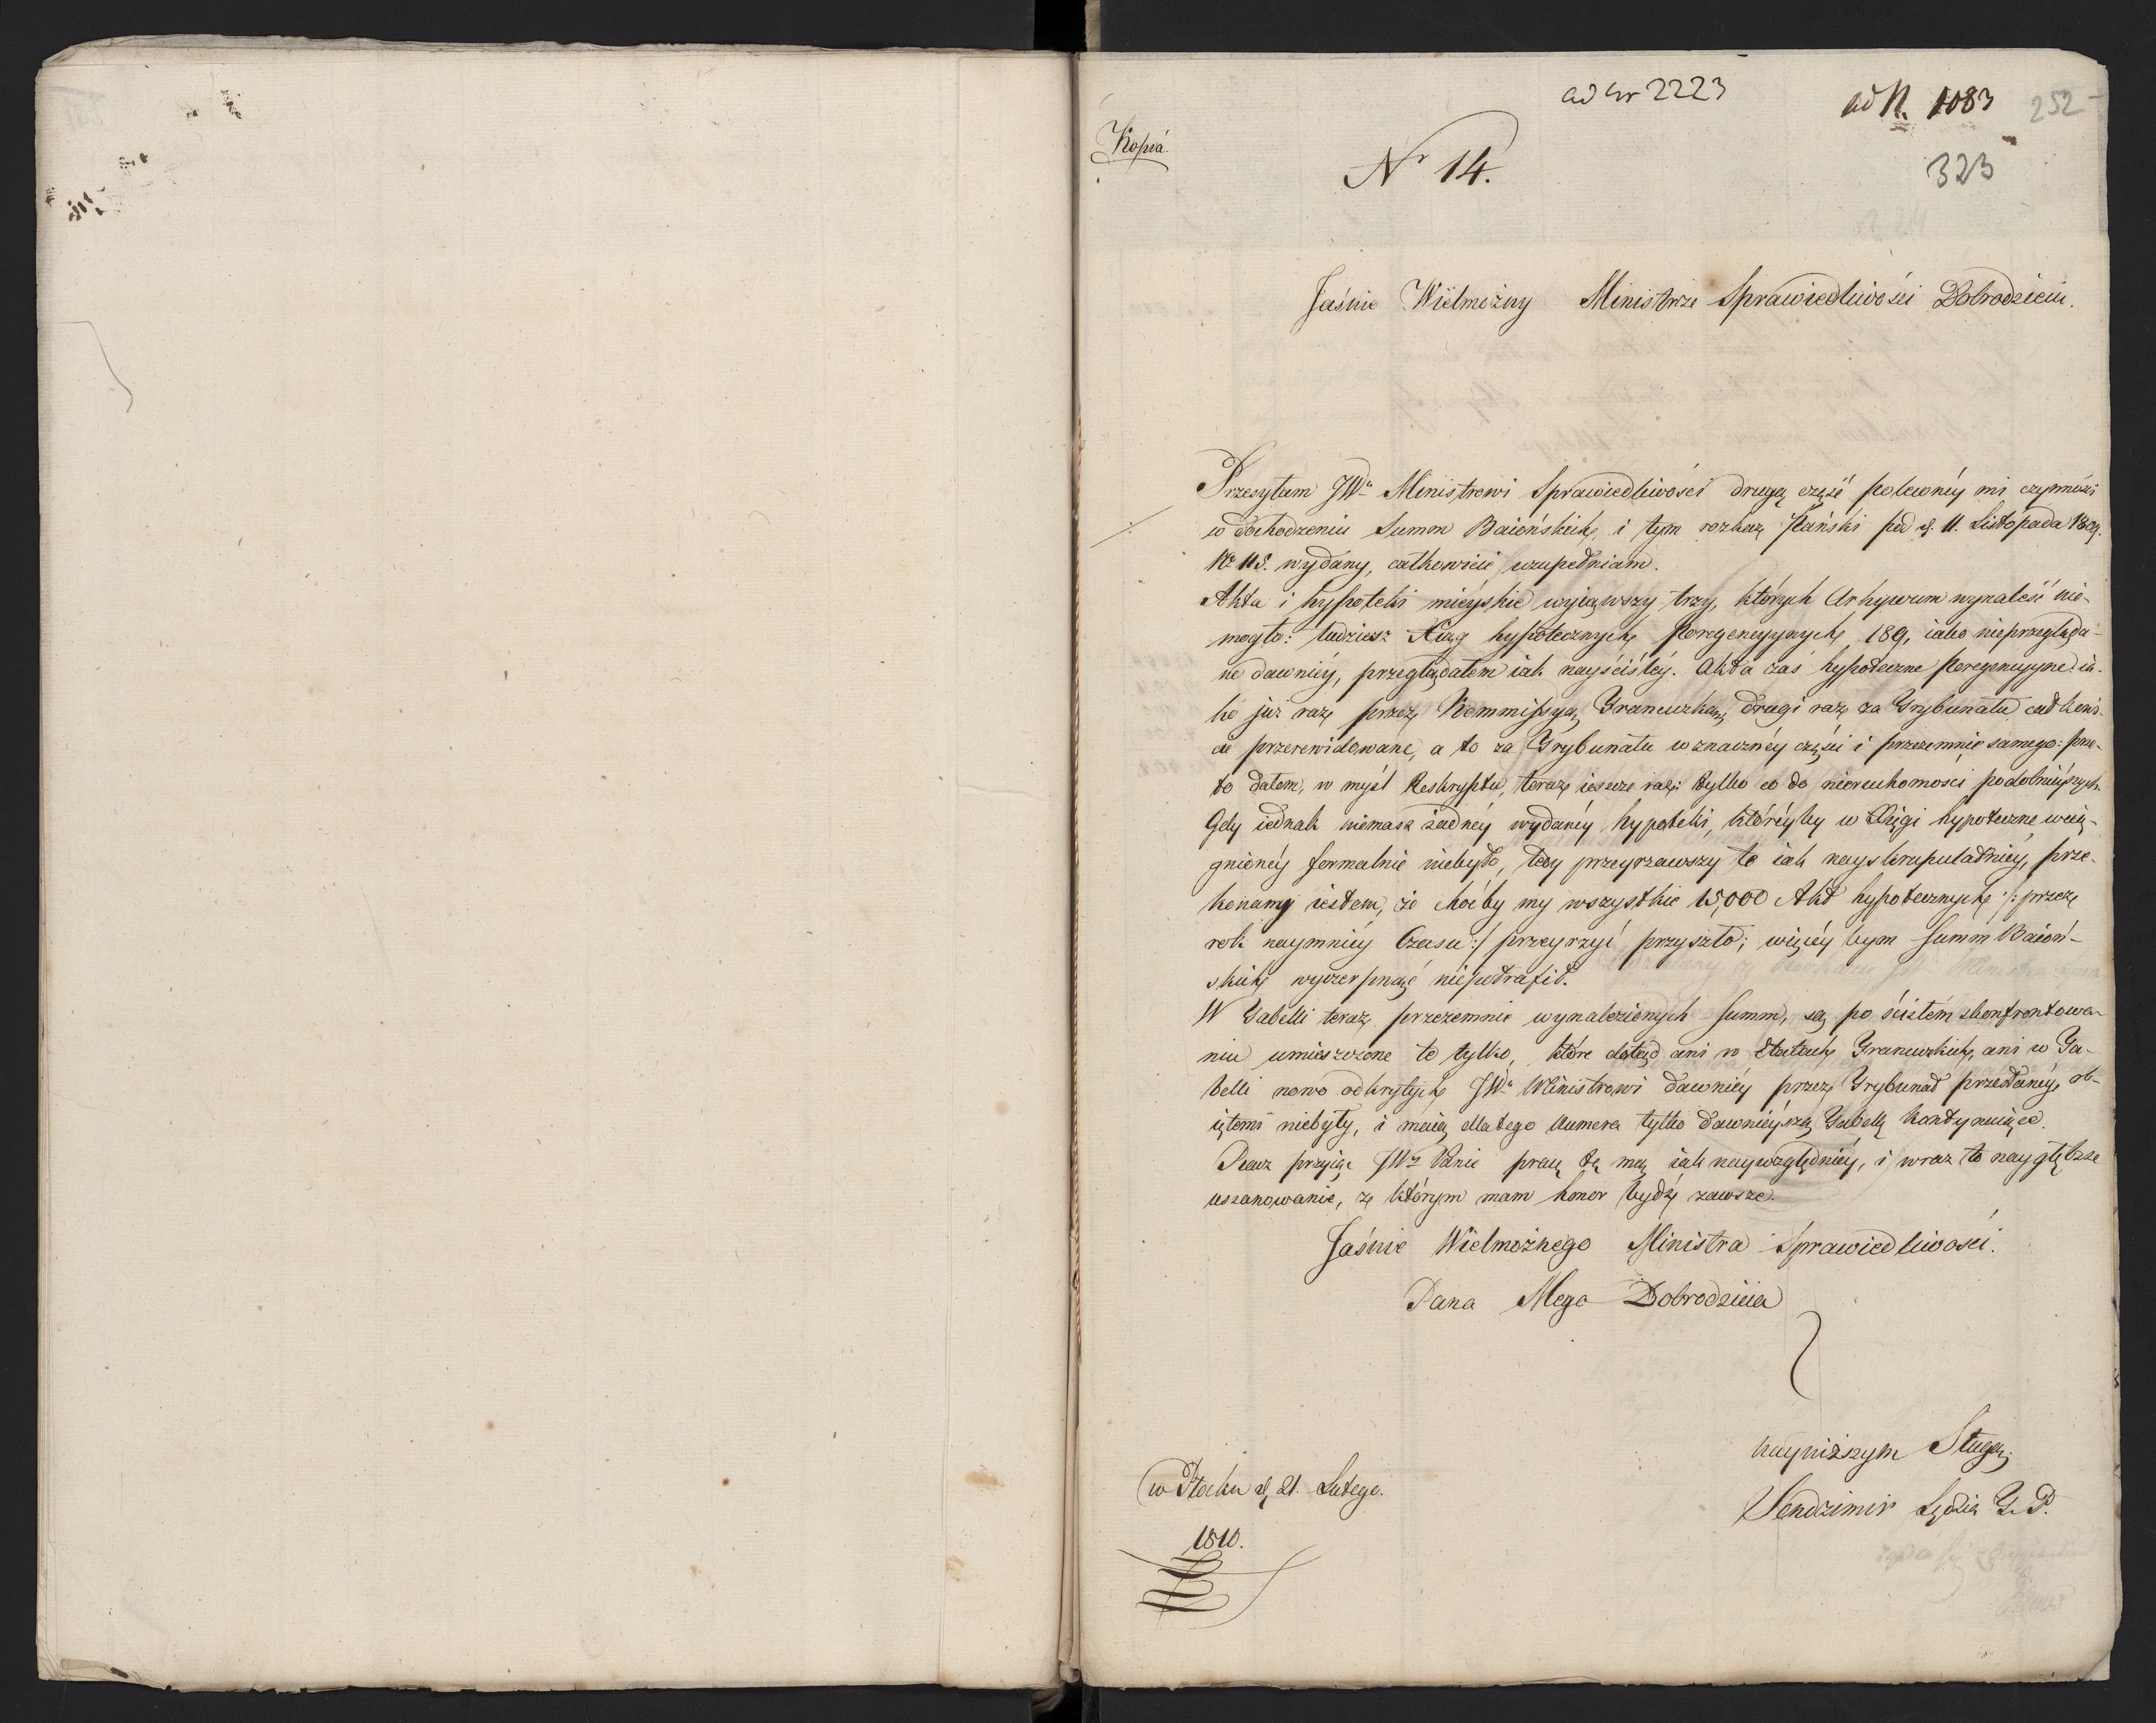 ad Nr 2223
ad N. 1083 252
Kopia
Nr 14.
323
Jaśnie Wielmożny Ministrze Sprawiedliwości Dobrodzieiu.
Przesyłam JWu Ministrowi Sprawiedliwości drugą część poleconéy mi czynności
w dochodzeniu Summ Baiońskich, i tym rozkaz Pański pod d. 11. Listopada 1809.
No 115. wydany, całkowicie uzupełniam.
Akta i hypoteki mieyskie wyiąwszy trzy, których Arhywum wynaleść nie-
mogło: tudziesz Xiąg hypotecznych poregencyynych 189, iako nieprzegląda-
ne dawniéy, przeglądałem iak nayściśléy. Akta zaś hypoteczne poregencyyne ia-
ko już raz przez Kommissyą Francuzką, drugi raz za Trybunału całkowi-
cie przerewidowane, a to za Trybunału w znacznéy części i przezemnie samego: prze-
to dałem, w myśl Reskryptu, teraz ieszcze raz: tylko co do nieruchomości podobnieyszych.
Gdy iednak niemasz żadnéy wydanéy hypoteki, któréyby w Xięgi hypoteczne wcią-
gnionéy formalnie niebyło, tedy przeyrzawszy te iak nayskrupulatniéy, prze-
konany iestem, że choćby my wszystkie 15,000 Akt hypotecznych /: przez
rok naymniéy Czasu :/ przeyrzyć przyszło; więcéy bym Summ Baioń-
skich wyczerpnąć niepotrafił.
W Tabelli teraz przezemnie wynalezionych Summ, są po ścisłém skonfrontowa-
niu umieszczone te tylko, które dotąd ani w Etatach Francuzkich, ani w Ta-
belli nowo odkrytych JWu Ministrowi dawniéy przez Trybunał przesłanéy, ob-
iętemi niebyły, i maią dlatego Numera tylko dawnieyszą Tabellę kontynuiące.
Racz przyiąć JWy Panie pracę tę mą iak naywzględniéy, i wraz to naygłębsze
uszanowanie, z którym mam honor bydź zawsze.
Jaśnie Wielmożnego Ministra Sprawiedliwości.
Pana Mego Dobrodzieia
nayniższym Sługą
w Płocku d. 21. Lutego.
Sendzimir Sędzia T. P.
1810.